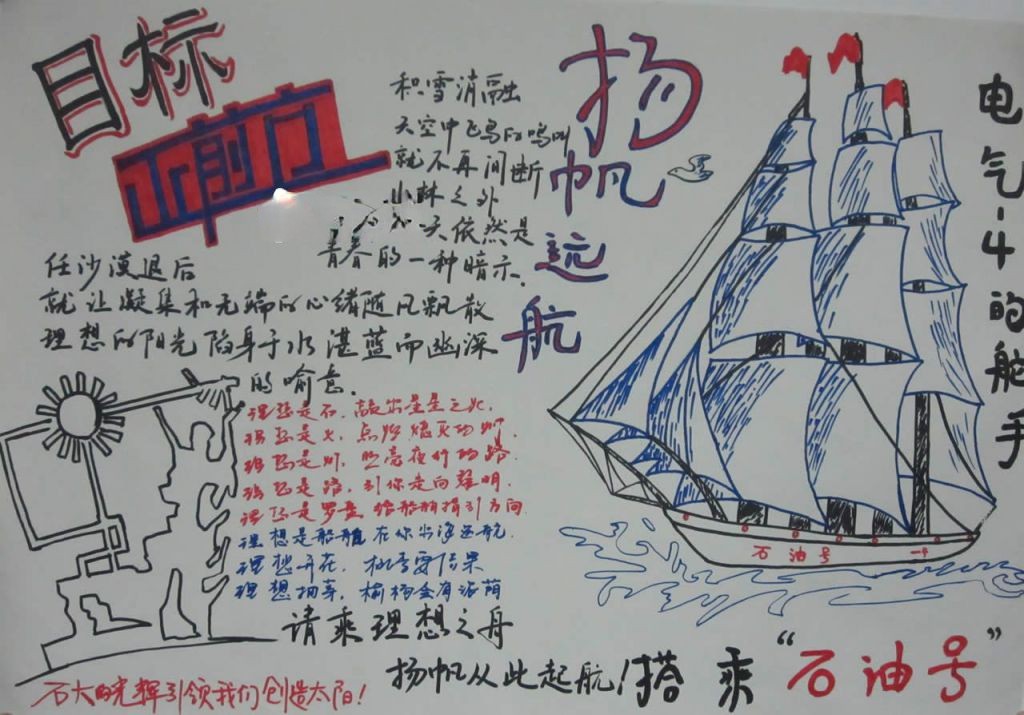 目标
正前方
积雪消融
天空中飞鸟的鸣叫
就不再间断
小林之外
天依然是
青春的一种暗示.
扬帆远航
电气-4的舵手
任沙漠退后
就让凝集和无端的心绪随风飘散
理想的阳光陷身于水湛蓝而幽深
的喻意.
理想是石,敲出星星之火,
理想是火,点燃熄灭的灯,
理想是灯,照亮夜行的路.
理想是路,引你走向黎明.
理想是罗盘,给船舶指引方向
理想是船舶,在你出海远航.
理想开花,桃李要结果
理想抽芽,榆杨会有浓荫
请乘理想之舟
扬帆从此起航!搭乘“石油号”
石油号
石大的光辉引领我们创造太阳!